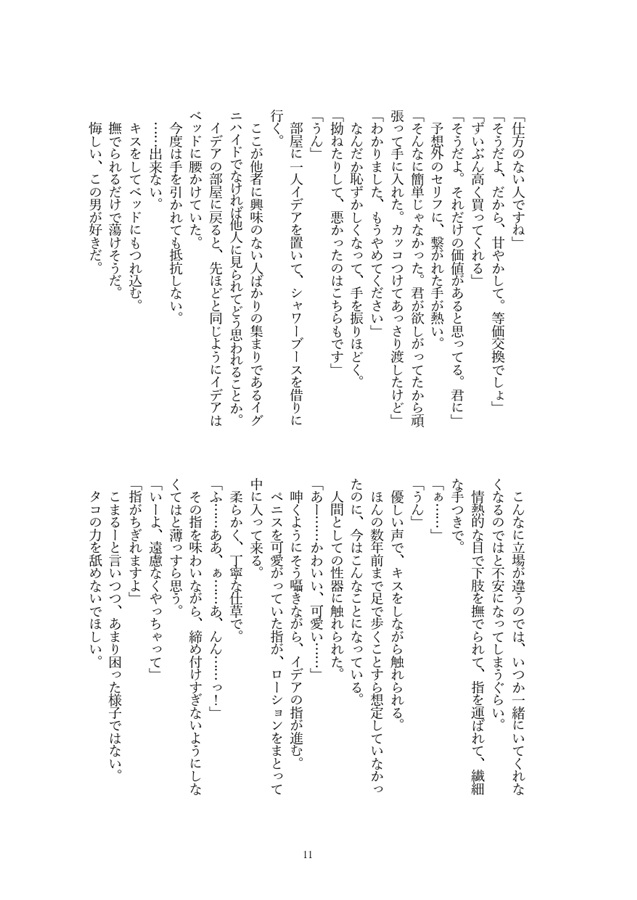 「仕方のない人ですね」
「そうだよ、だから、甘やかして。等価交換でしょ」
「ずいぶん高く買ってくれる」
「そうだよ。それだけの価値があると思ってる。君に」
予想外のセリフに、繋がれた手が熱い。
「そんなに簡単じゃなかった。君が欲しがってたから頑
張って手に入れた。カッコつけてあっさり渡したけど」
「わかりました、もうやめてください」
なんだか恥ずかしくなって、手を振りほどく。
「拗ねたりして、悪かったのはこちらもです」
「うん」
部屋に一人イデアを置いて、シャワーブースを借りに
行く。
ここが他者に興味のない人ばかりの集まりであるイグ
ニハイドでなければ他人に見られてどう思われることか。
イデアの部屋に戻ると、先ほどと同じようにイデアは
ベッドに腰かけていた。
今度は手を引かれても抵抗しない。
……出来ない。
キスをしてベッドにもつれ込む。
撫でられるだけで蕩けそうだ。
悔しい、この男が好きだ。
こんなに立場が違うのでは、いつか一緒にいてくれな
くなるのではと不安になってしまうぐらい。
情熱的な目で下肢を撫でられて、指を運ばれて、繊細
な手つきで。
「ぁ……」
「うん」
優しい声で、キスをしながら触れられる。
ほんの数年前まで足で歩くことすら想定していなかっ
たのに、今はこんなことになっている。
人間としての性器に触れられた。
「あー……かわいい、可愛い……」
呻くようにそう囁きながら、イデアの指が進む。
ペニスを可愛がっていた指が、ローションをまとって
中に入って来る。
柔らかく、丁寧な仕草で。
「ふ……ああ、ぁ……あ、んん……っ！」
その指を味わいながら、締め付けすぎないようにしな
くてはと薄っすら思う。
「いーよ、遠慮なくやっちゃって」
「指がちぎれますよ」
こまるーと言いつつ、あまり困った様子ではない。
タコの力を舐めないでほしい。
11